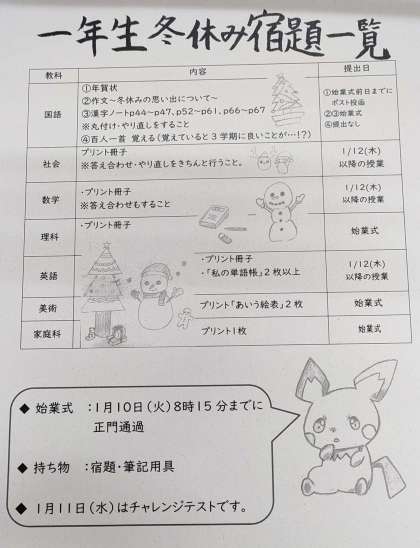 一年生冬休み宿題一覧
教科 内容 提出日
国語
①年賀状
②作文～冬休みの思い出について～
③漢字ノートp44～p47、p52～p61、p66～p67
※丸付け・やり直しをすること
④百人一首 覚える(覚えていると3学期に良いことが…!?)
①始業式前日までに
ポスト投函
②③始業式
④提出なし
社会
プリント冊子
※答え合わせ・やり直しをきちんと行うこと。
1/12(木)
以降の授業
数学
・プリント冊子
※答え合わせもすること
1/12(木)
以降の授業
理科
・プリント冊子
始業式
英語
・プリント冊子
・「私の単語帳」2枚以上
1/12(木)
以降の授業
美術
プリント「あいう絵表」2枚
始業式
家庭科
プリント1枚
始業式
◆ 始業式 :1月10日(火)8時15分までに
正門通過
◆ 持ち物 :宿題・筆記用具
◆ 1月11日(水)はチャレンジテストです。